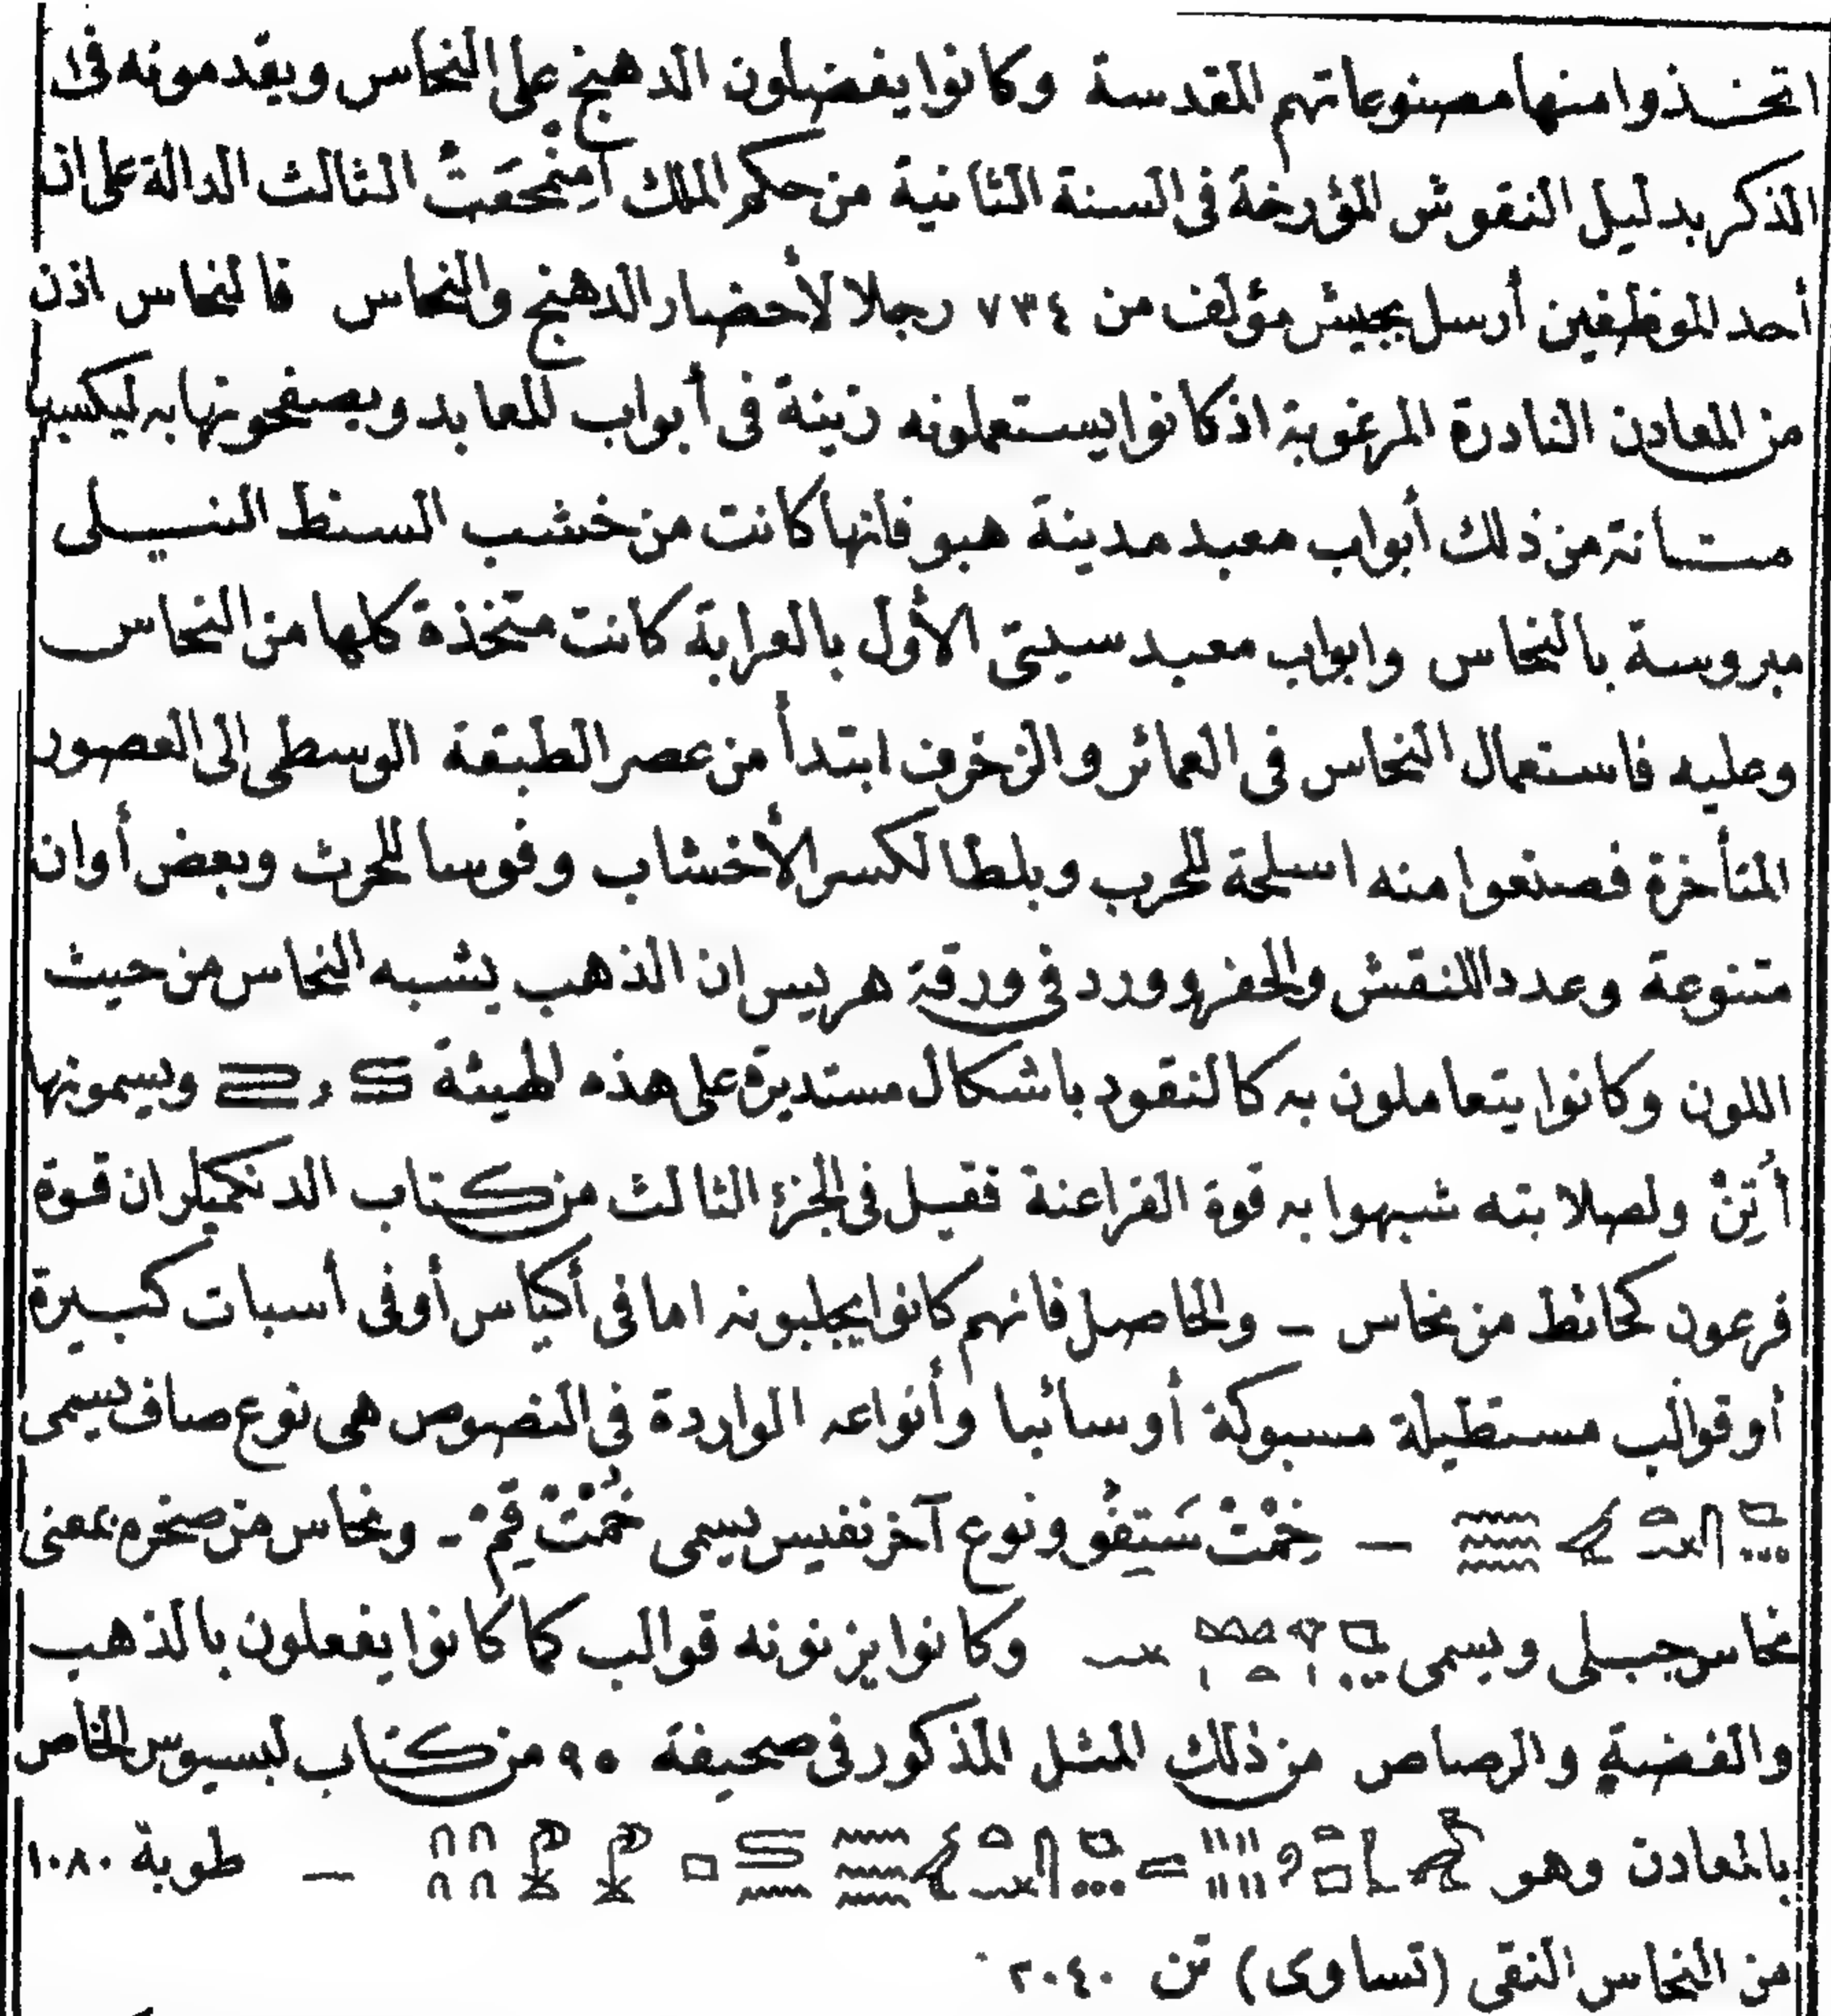 اتخذوا منها مصنوعاتهم المقدسة وكانوا يفضلون الدهنج على النحاس ويقدمونه فى
الذكر بدليل النقوش المؤرخة فى السنة الثانية من حكم الملك أمنمحعت الثالث الدالة على ان
أحد الموظفين أرسل بجيش مؤلف من ٧٣٤ رجلا لأحضار الدهنج والنحاس فالنحاس اذن
من المعادن النادرة المرغوبة اذ كانوا يستعملونه زينة فى أبواب المعابد ويصفحونها به ليكسبها
متانة من ذلك أبواب معبد مدينة هبو فانها كانت من خشب السنط النيلى
مبروسة بالنحاس وابواب معبد سيتى الأول بالعرابة كانت متخذة كلها من النحاس
وعليه فاستعمال النحاس فى العمائر والزخرف ابتدأ من عصر الطبقة الوسطى الى العصور
المتأخرة فصنعوا منه اسلحة للحرب وبلطا لكسر الأخشاب وفوسا للحرث وبعض أوان
متنوعة وعددا للنقش والحفر وورد فى ورقة هريس ان الذهب يشبه النحاس من حيث
اللون وكانوا يتعاملون به كالنقود باشكال مستديرة على هذه الهيئة و ويسمونها
أُتِنْ ولصلابته شبهوا به قوة الفراعنة فقيل فى الجزء الثالث من كتاب الدنكميلر ان قوة
فرعون كحائط من نحاس - والحاصل فانهم كانوا يجلبونه اما فى أكياس أو فى أسبات كبيرة
أو قوالب مستطيلة مسبوكة أو سائبا وأنواعه الواردة فى النصوص هى نوع صاف يسمى
— خِمْتْ سَتِفُو ونوع آخر نفيس يسمى خُمْتْ قِمْ - ونحاس من صخره بمعنى
نحاس جبلى ويسمى وكانوا يزنونه قوالب كما كانوا يفعلون بالذهب
والفضة والرصاص من ذلك المثل المذكور فى صحيفة ٩٥ من كتاب لبسيوس الخاص
بالمعادن وهو — طوبة ١٠٨٠
من النحاس النقى (تساوى) تن ٢٠٤٠